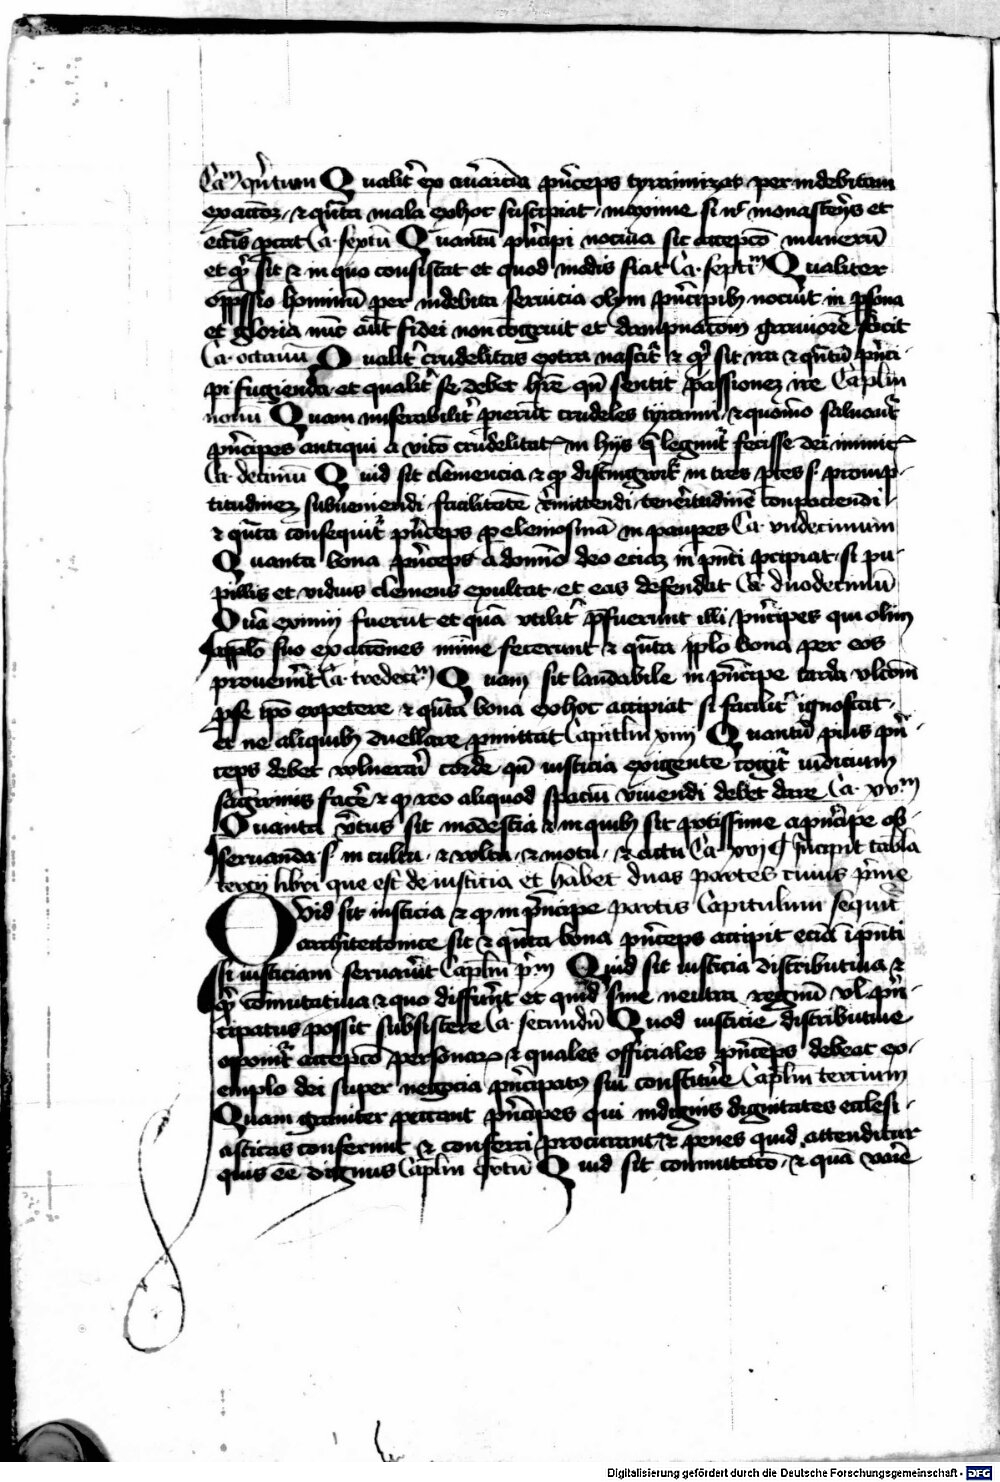 Cam qntum Qualit ex avaricia pnceps tyrannizat per indebitam
exactoz · et qnta mala ex hoc suscipiat · maxime si in monasterijs et
ecciis pctat Ca · sextu Quantu pncipi nociva sit accepco muneru
et qd sit et in quo consistat et quod modis fiat Ca · septim Qualiter
oppssio hominu per indebita servicia olym pncipib nocuit in psona
et gloria nunc aut fidei non congruit et dampnacom graviore facit
Ca · octavu Qualit crudelitas extra nascit et qd sit ira et qntu pnci
pi fugienda et qualit se debet hre qn sentit passionez ire Capim
nonu Quam miserabilit pierut crudeles tyranni · et quomo salvant
pncipes antiqui a vico crudelitat in hijs q legunt fecisse dei inimic
Ca · decimu Quid sit clemencia et qd distingwit in tres ptes s · promp ·
titudinez subveniendi · facilitate remittendi · teneritudine conpaciendi
et qnta consequit pnceps p elemosina in paupes Ca · undecimum
Quanta bona pnceps a domino deo eciaz in pnti pcipiat · si pu ·
pillis et viduis clemens exultat · et eas defendat Ca · duodecimu
Qua eximij fuerut et qua utilit pfuerunt illi pncipes qui olim
applo suo exacciones mine fecerunt et qnta pplo bona per eos
provenerut Ca · tredecim Quam sit laudabile in pncipe tarda ulcom
p se ipo expetere et qnta bona ex hoc accipiat si facilit ignoscat ·
et ne aliquib duellare pmittat Capitlm xiiij Quantu pius pn
ceps debet vulnerari corde qn iusticia exigente cogit iudicium
sagwinis facere et qd reo aliquod spaciu vivendi debet dare Ca · xvm
Quanta virtus sit modestia et in quib sit potissime a pncipe ob ·
servanda · s · in cultu · et voltu · et motu · et actu Ca xvj ¶ Incipit tabla
tercij libri que est de iusticia et habet duas partes cuius pme
Qvid sit iusticia et qd in principe partis Capitulum sequit
architectonice sit et qnta bona pnceps accipit ecia i pnti
si iusticiam servavit Capim pm Quid sit iusticia distributiva et
qd comutativa et quo differut et quid sine neutra regnu vl pn
cipatus possit subsistere Ca · secundu Quod iusticie distributive
oponit accepco personar et quales officiales pnceps debeat ex ·
emplo dei super negocia pncipatus sui constituere Capim tercium
Quam graviter peccant pncipes qui indignis dignitates ecclesi ·
asticas conferunt et conferri procurant et penes quid attenditur
quis ee dignus Capim qrtu Quid sit comutaco · et qua varie
Digitalisierung gefördert durch die Deutsche Forschungsgemeinschaft - DFG